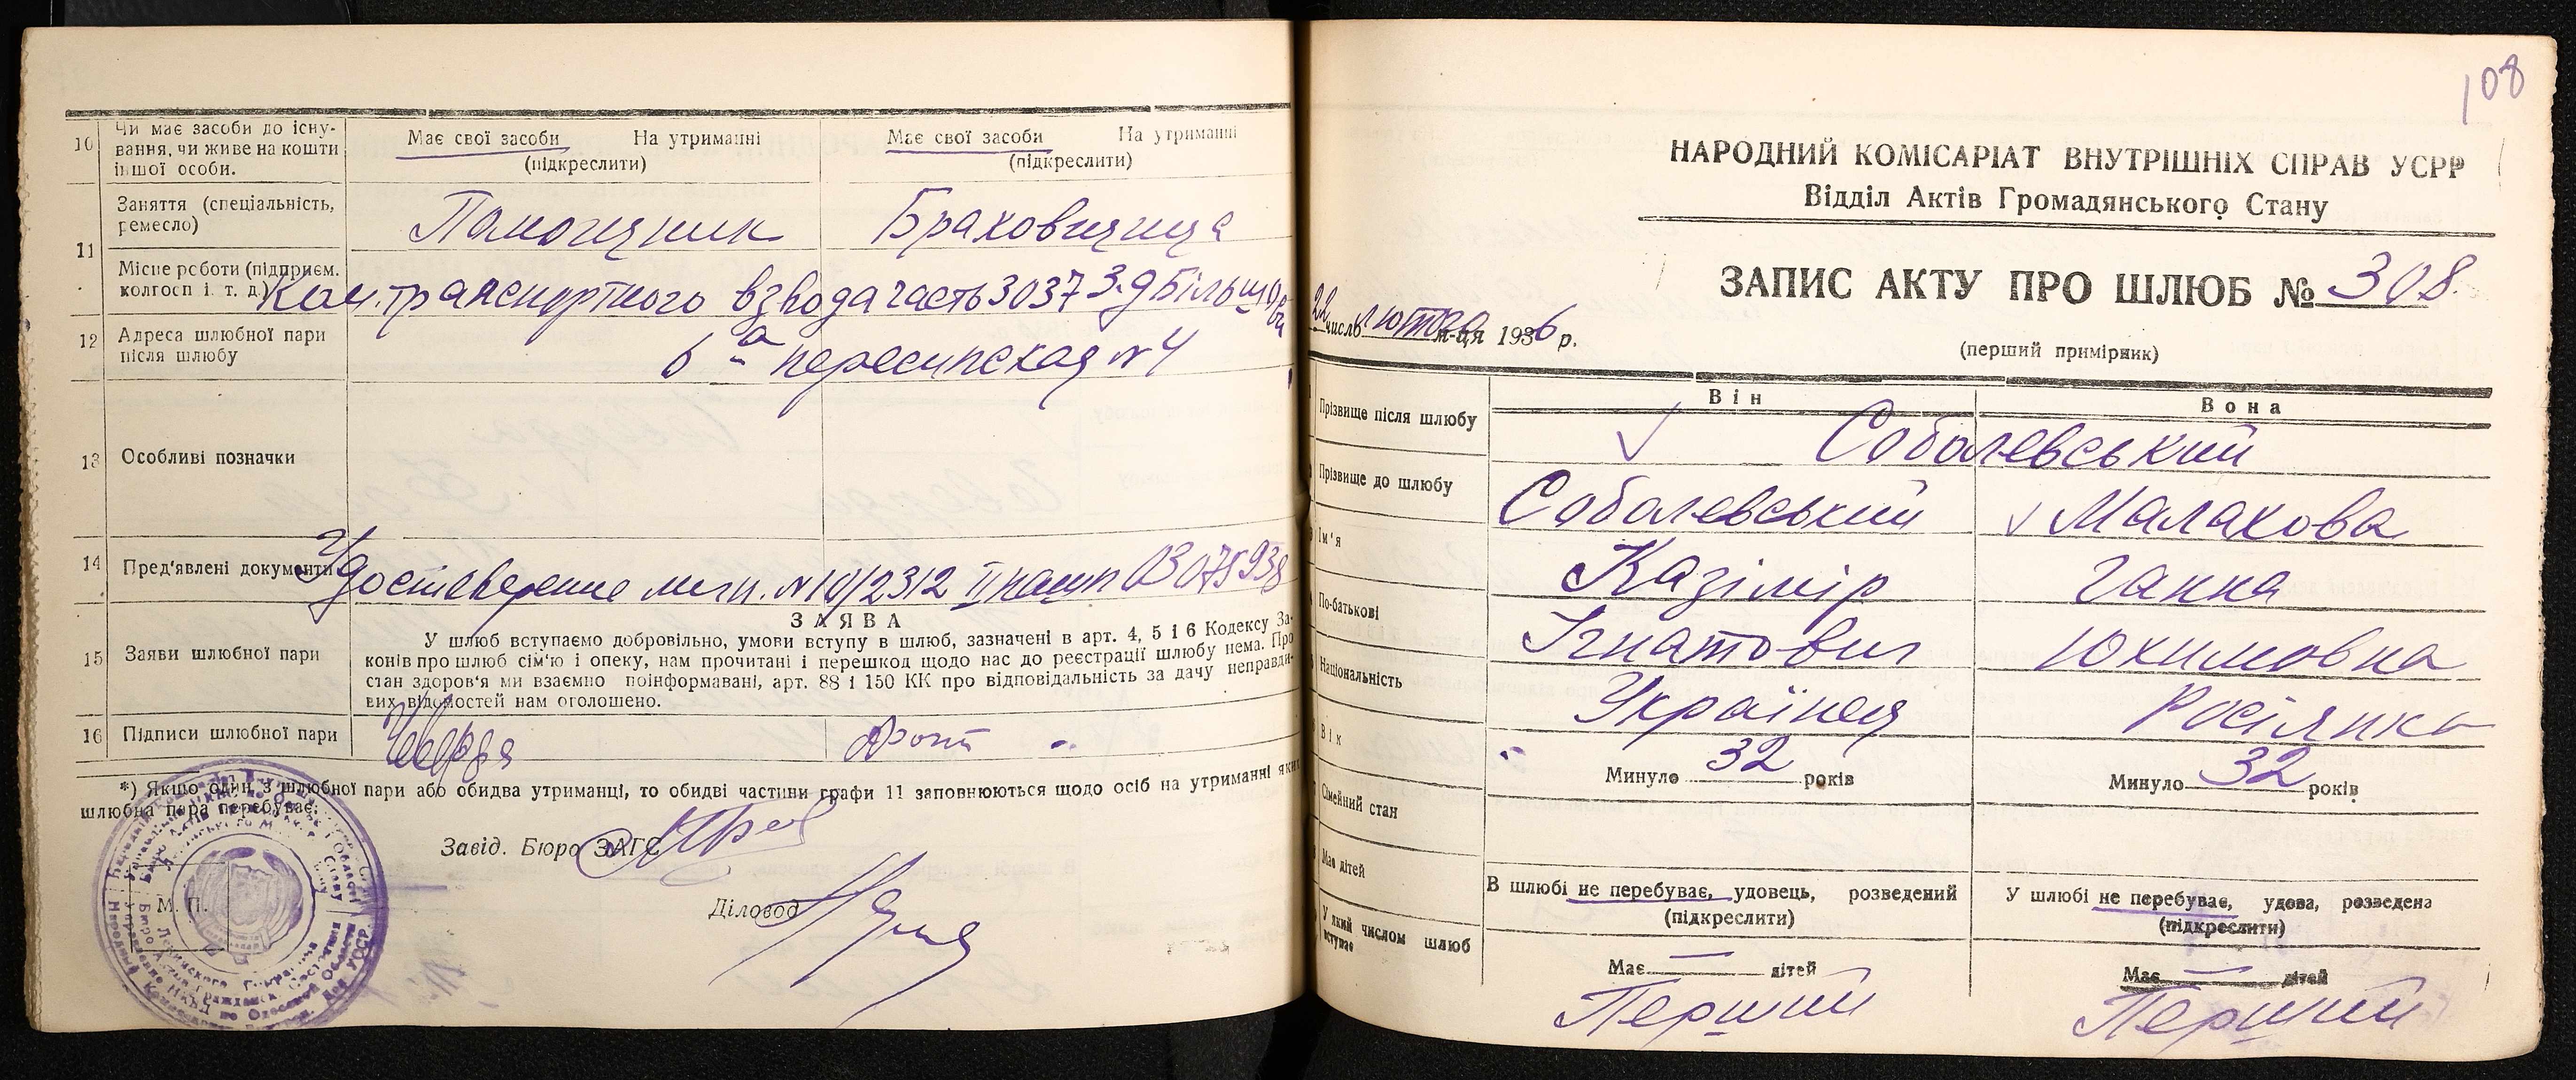 10 Чи має засоби до існу-
вання, чи живе на кошти
іншої особи.
Має свої засоби На утриманні
(підкреслити)
Має свої засоби На утриманні
(підкреслити)
11 Заняття (спеціальність,
ремесло)
Памощник
Браховщица
Місце роботи (підприєм.
колгосп і. т. д.)
Ком. транспортного взвода часть 3037 З-д Більшов
12 Адреса шлюбної пари
після шлюбу
6 - а пересипская № 4
13 Особливі позначки
14 Пред'явлені документи
Удостеверение № 10/2312 II пашп 03075938
15 Заяви шлюбної пари
ЗАЯВА
У шлюб вступаємо добровільно, умови вступу в шлюб, зазначені в арт. 4, 5 і 6 Кодексу За-
конів про шлюб сім'ю і опеку, нам прочитані і перешкод щодо нас до реєстрації шлюбу нема. Про
стан здоров'я ми взаємно поінформавані, арт. 88 і 150 КК про відповідальність за дачу неправди-
вих відомостей нам оголошено.
16 Підписи шлюбної пари
*) Якщо один з шлюбної пари або обидва утриманці, то обидві частини графи 11 заповнюються щодо осіб на утриманні яких
шлюбна пара перебуває.
Завід. Бюро ЗАГС
М. П.
Діловод
108
НАРОДНИЙ КОМІСАРІАТ ВНУТРІШНІХ СПРАВ УСРР
Відділ Актів Громадянського Стану
ЗАПИС АКТУ ПРО ШЛЮБ № 308.
22 число лютого м-ця 1936 р.
(перший примірник)
Він Вона
Прізвище після шлюбу
Соболевський
Прізвище до шлюбу
Соболевський
Малахова
Ім'я
Казімір
Ганна
По-батькові
Ігнатович
Юхимовна
Національність
Українец
Росіянка
Вік
Минуло 32 років
Минуло 32 років
Сімейний стан
Має дітей
У який числом шлюб
вступає
В шлюбі не перебуває, удовець, розведений
(підкреслити)
У шлюбі не перебуває, удова, розведена
(підкреслити)
Має — дітей
Має — дітей
Перший
Перший